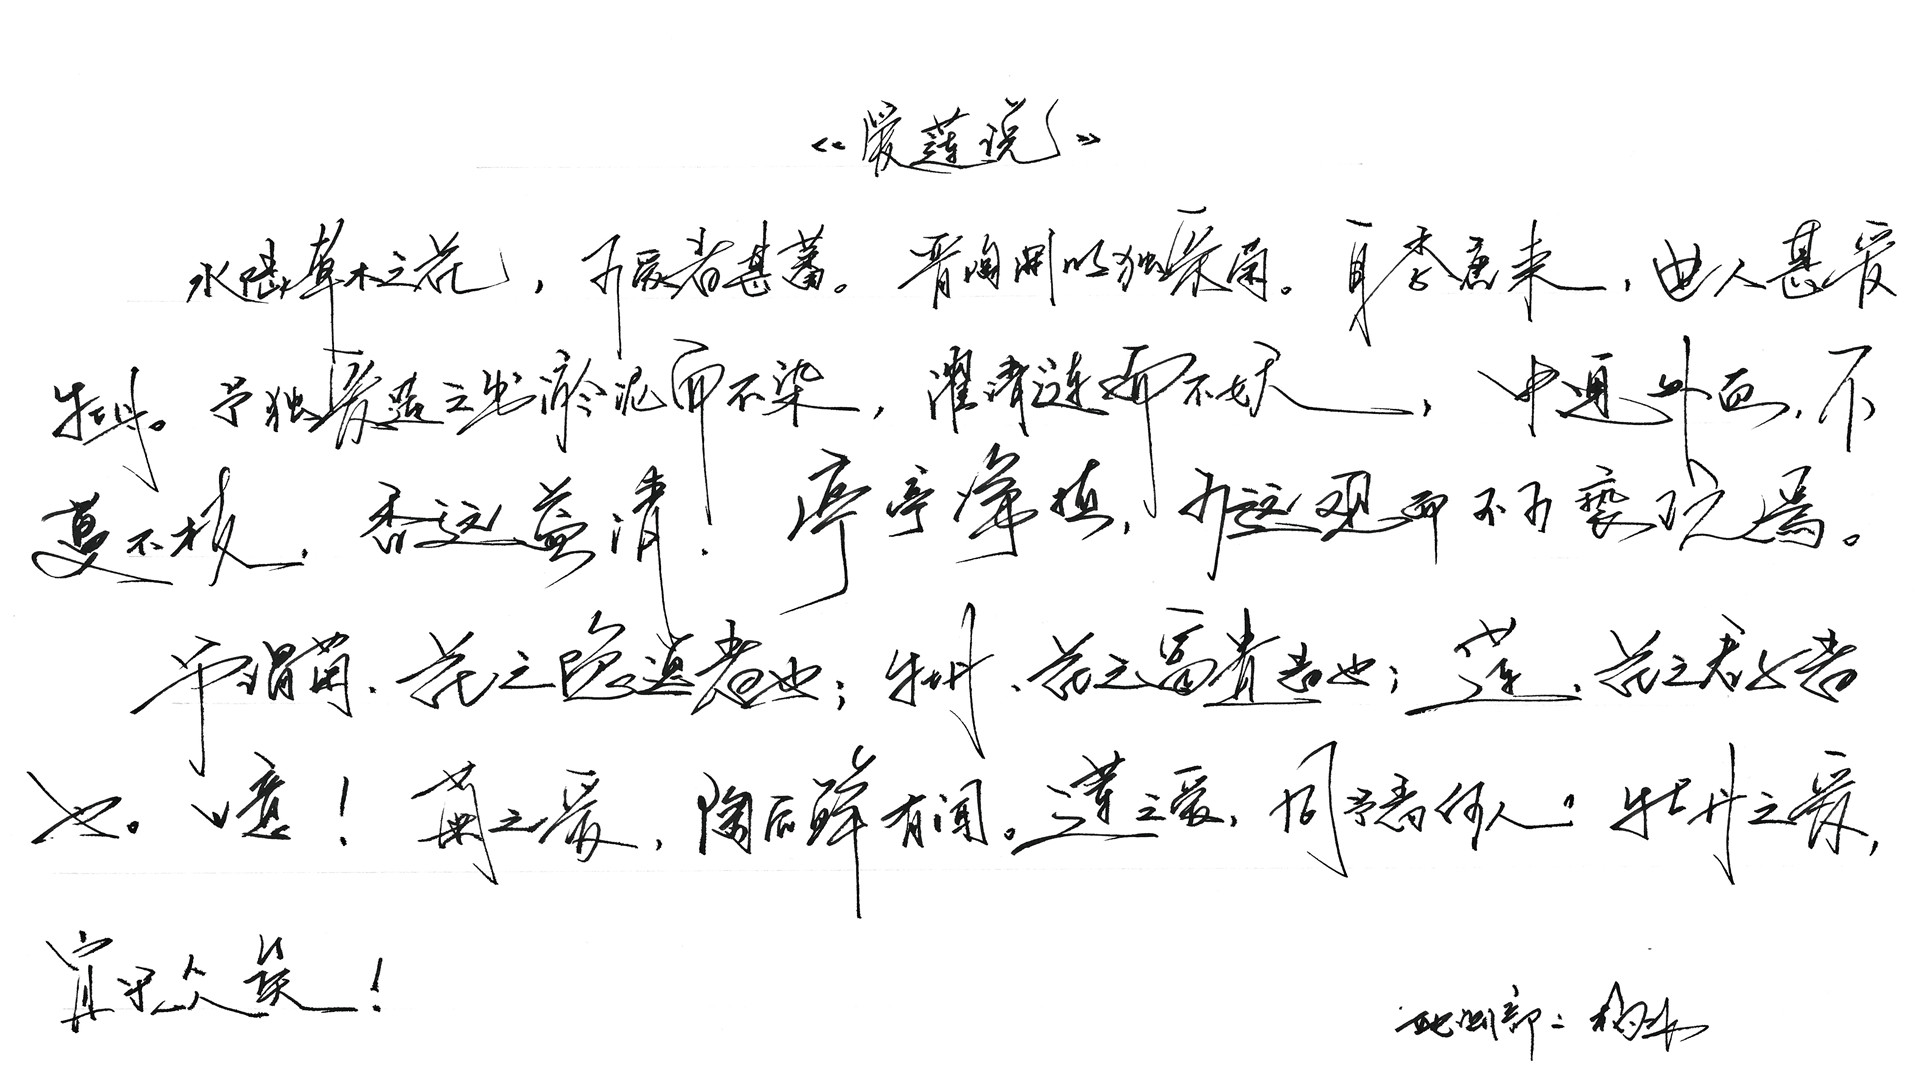 《爱莲说》
水陆草木之花，可爱者甚蕃。晋陶渊明独爱菊。自李唐来，世人甚爱
牡丹。予独爱莲之出淤泥而不染，濯清涟而不妖，中通外直，不
蔓不枝，香远益清，亭亭净植，可远观而不可亵玩焉。
予谓菊，花之隐逸者也；牡丹，花之富贵者也；莲，花之君子者
也。噫！菊之爱，陶后鲜有闻。莲之爱，同予者何人？牡丹之爱，
宜乎众矣！
部：